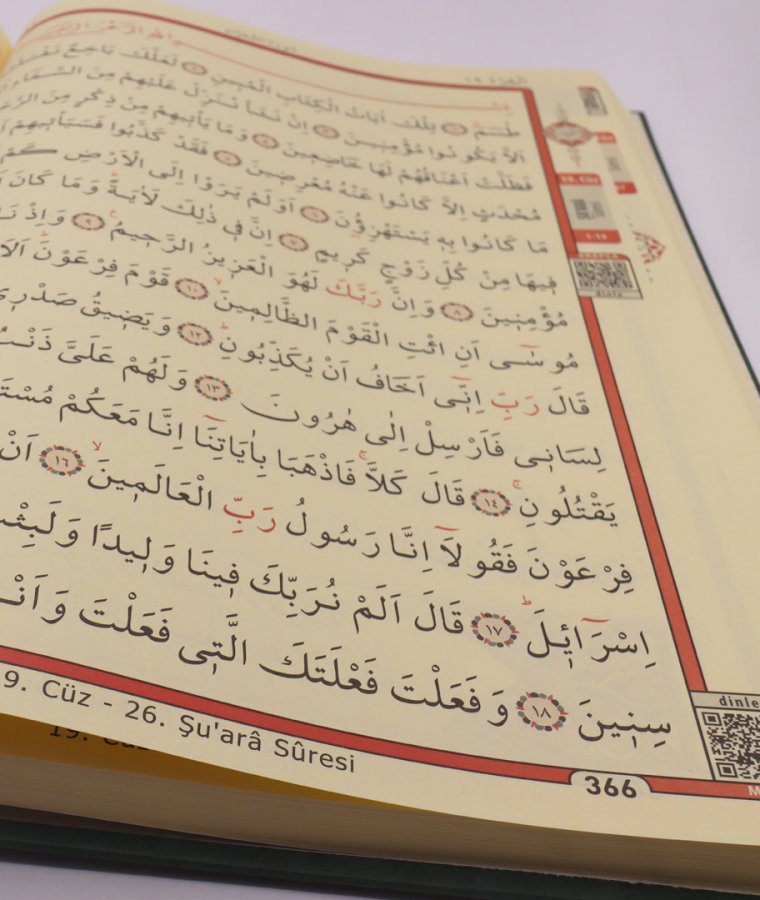 الجزء ١٩
طٰسٓمٓ ﴿١﴾ تِلْكَ اٰيَاتُ الْكِتَابِ الْمُبِينِ ﴿٢﴾ لَعَلَّكَ بَاخِعٌ
اَلَّا يَكُونُوا مُؤْمِنِينَ ﴿٣﴾ اِنْ نَشَأْ نُنَزِّلْ عَلَيْهِمْ مِنَ السَّمَاءِ
فَظَلَّتْ اَعْنَاقُهُمْ لَهَا خَاضِعِينَ ﴿٤﴾ وَمَا يَأْتِيهِمْ مِنْ ذِكْرٍ مِنَ
مُحْدَثٍ اِلَّا كَانُوا عَنْهُ مُعْرِضِينَ ﴿٥﴾ فَقَدْ كَذَّبُوا فَسَيَأْتِيهِمْ
مَا كَانُوا بِهِ يَسْتَهْزِؤُنَ ﴿٦﴾ اَوَلَمْ يَرَوْا اِلَى الْاَرْضِ كَمْ
فِيهَا مِنْ كُلِّ زَوْجٍ كَرِيمٍ ﴿٧﴾ اِنَّ فِى ذٰلِكَ لَاٰيَةً وَمَا كَانَ
مُؤْمِنِينَ ﴿٨﴾ وَاِنَّ رَبَّكَ لَهُوَ الْعَزِيزُ الرَّحِيمُ ﴿٩﴾ وَاِذْ
مُوسٰٓى اَنِ ائْتِ الْقَوْمَ الظَّالِمِينَ ﴿١٠﴾ قَوْمَ فِرْعَوْنَ
قَالَ رَبِّ اِنّٓى اَخَافُ اَنْ يُكَذِّبُونِ ﴿١٢﴾ وَيَضِيقُ صَدْرِى
لِسَانِى فَاَرْسِلْ اِلٰى هٰرُونَ ﴿١٣﴾ وَلَهُمْ عَلَىَّ
يَقْتُلُونِ ﴿١٤﴾ قَالَ كَلَّا فَاذْهَبَا بِاٰيَاتِنَٓا اِنَّا مَعَكُمْ
فِرْعَوْنَ فَقُولَٓا اِنَّا رَسُولُ رَبِّ الْعَالَمِينَ ﴿١٦﴾ اَنْ
اِسْرَٓائِلَ ﴿١٧﴾ قَالَ اَلَمْ نُرَبِّكَ فِينَا وَلِيدًا
سِنِينَ ﴿١٨﴾ وَفَعَلْتَ فَعْلَتَكَ الَّتِى فَعَلْتَ
9. Cüz - 26. Şu'arâ Sûresi
366
19. Cüz
dinle
dinle